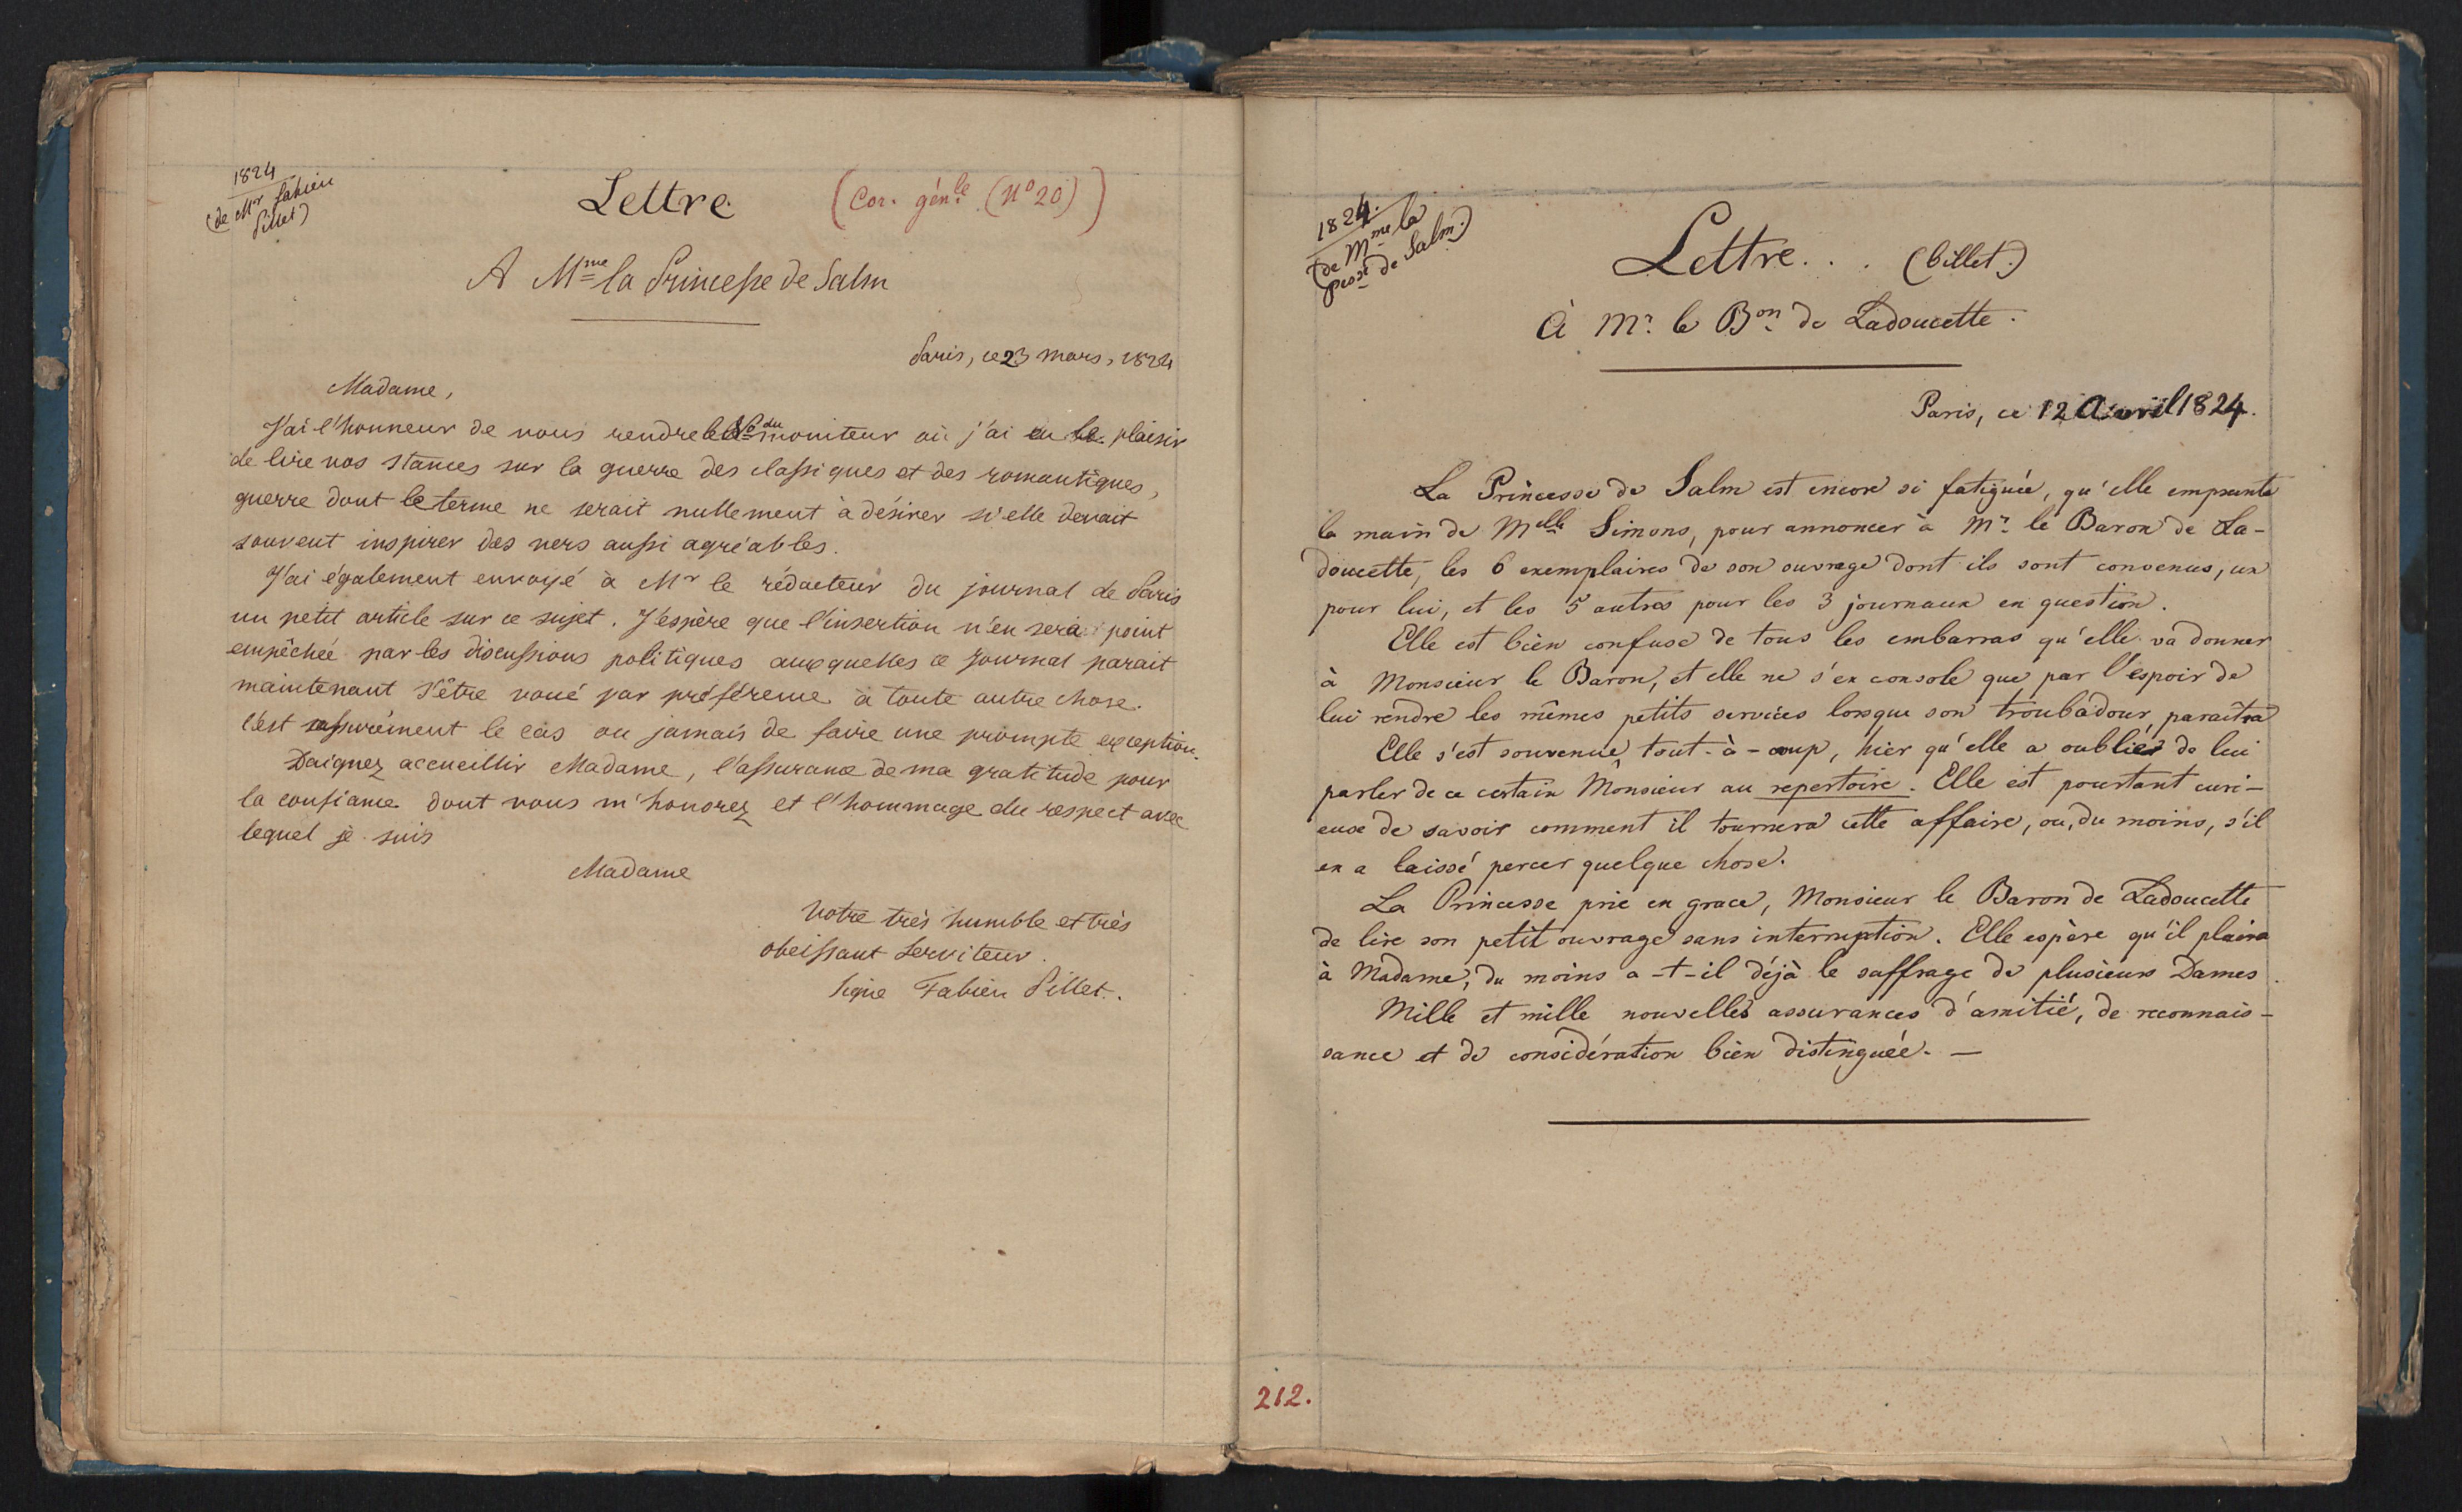 1824
(de Mr Fabien
Pillet)
Lettre (Cor. génle. (No 20))
A Mme la Princesse de Salm
Paris, ce 23 mars, 1824
Madame,
J'ai l'honneur de vous rendre le No du moniteur où j'ai eu le plaisir
de lire vos stances sur la guerre des classiques et des romantiques,
guerre dont le terme ne serait nullement à désirer si elle devait
souvent inspirer des vers aussi agréables.
J'ai également envoyé à Mr le rédacteur du journal de Paris
un petit article sur ce sujet. J'espère que l'insertion n'en sera point
empêchée par les discussions politiques auxquelles ce journal parait
maintenant s'être voué par préférence à toute autre chose.
C'est assurément le cas ou jamais de faire une prompte exception.
Daignez accueillir Madame, l'assurance de ma gratitude pour
la confiance dont vous m'honorez et l'hommage du respect avec
lequel je suis
Madame
Votre très humble et très
obeissant Serviteur.
Signé Fabien Pillet.
1824.
(de Mme la
Pesse de Salm.)
Lettre... (billet.)
À Mr. le Bon de Ladoucette.
Paris, ce 12 Avril 1824.
La Princesse de Salm est encore si fatiguée, qu'elle emprunte
la main de Melle Simons, pour annoncer à Mr. le Baron de La-
doucette, les 6 exemplaires de son ouvrage dont ils sont convenus, un
pour lui, et les 5 autres pour les 3 journaux en question.
Elle est bien confuse de tous les embarras qu'elle va donner
à Monsieur le Baron, et elle ne s'en console que par l'espoir de
lui rendre les mêmes petits services lorsque son troubadour paraîtra
Elle s'est souvenue, tout-à-coup, hier qu'elle a oublié de lui
parler de ce certain Monsieur au repertoire. Elle est pourtant curi-
euse de savoir comment il tournera cette affaire, ou, du moins, s'il
en a laissé percer quelque chose.
La Princesse prie en grace, Monsieur le Baron de Ladoucette
de lire son petit ouvrage sans interruption. Elle espère qu'il plaira
à Madame, du moins a-t-il déjà le suffrage de plusieurs Dames
Mille et mille nouvelles assurances d'amitié, de reconnais-
sance et de considération bien distinguée. —
212.